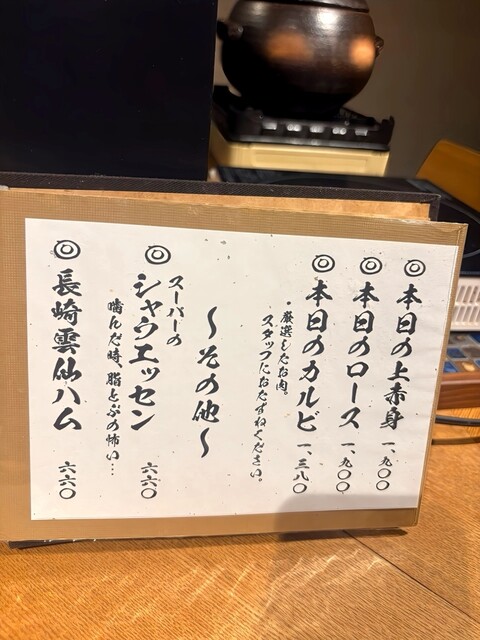 ◎本日の上赤身 一、九〇〇
◎本日のロース 一、九〇〇
◎本日のカルビ 一、三八〇
・厳選したお肉。
スタッフにおたずねください。
〜その他〜
スーパーの
◎シャウエッセン 六六〇
噛んだ時、脂とぶの怖い…
◎長崎雲仙ハム 六六〇